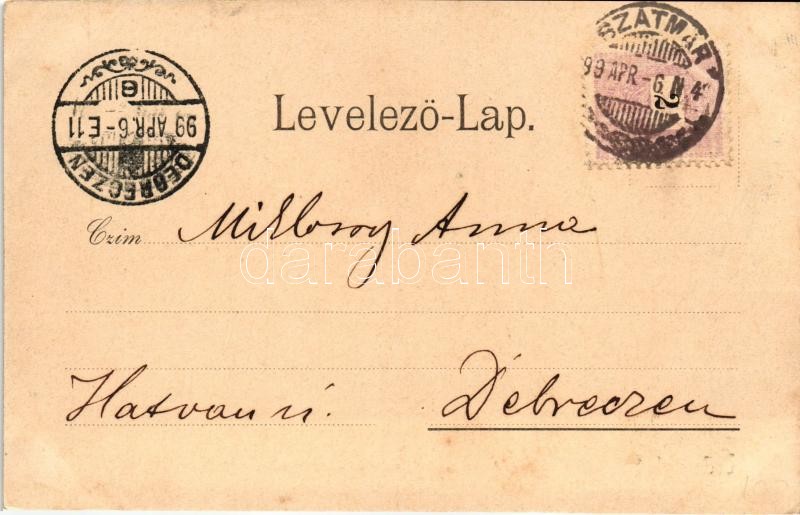 SZATMÁR
99 APR.-6 N 4
2
DEBRECZEN
99 APR. 6-E.11
Levelező-Lap.
Czim Miklossy Anna
darabanth
Hatvan u. Debreczen